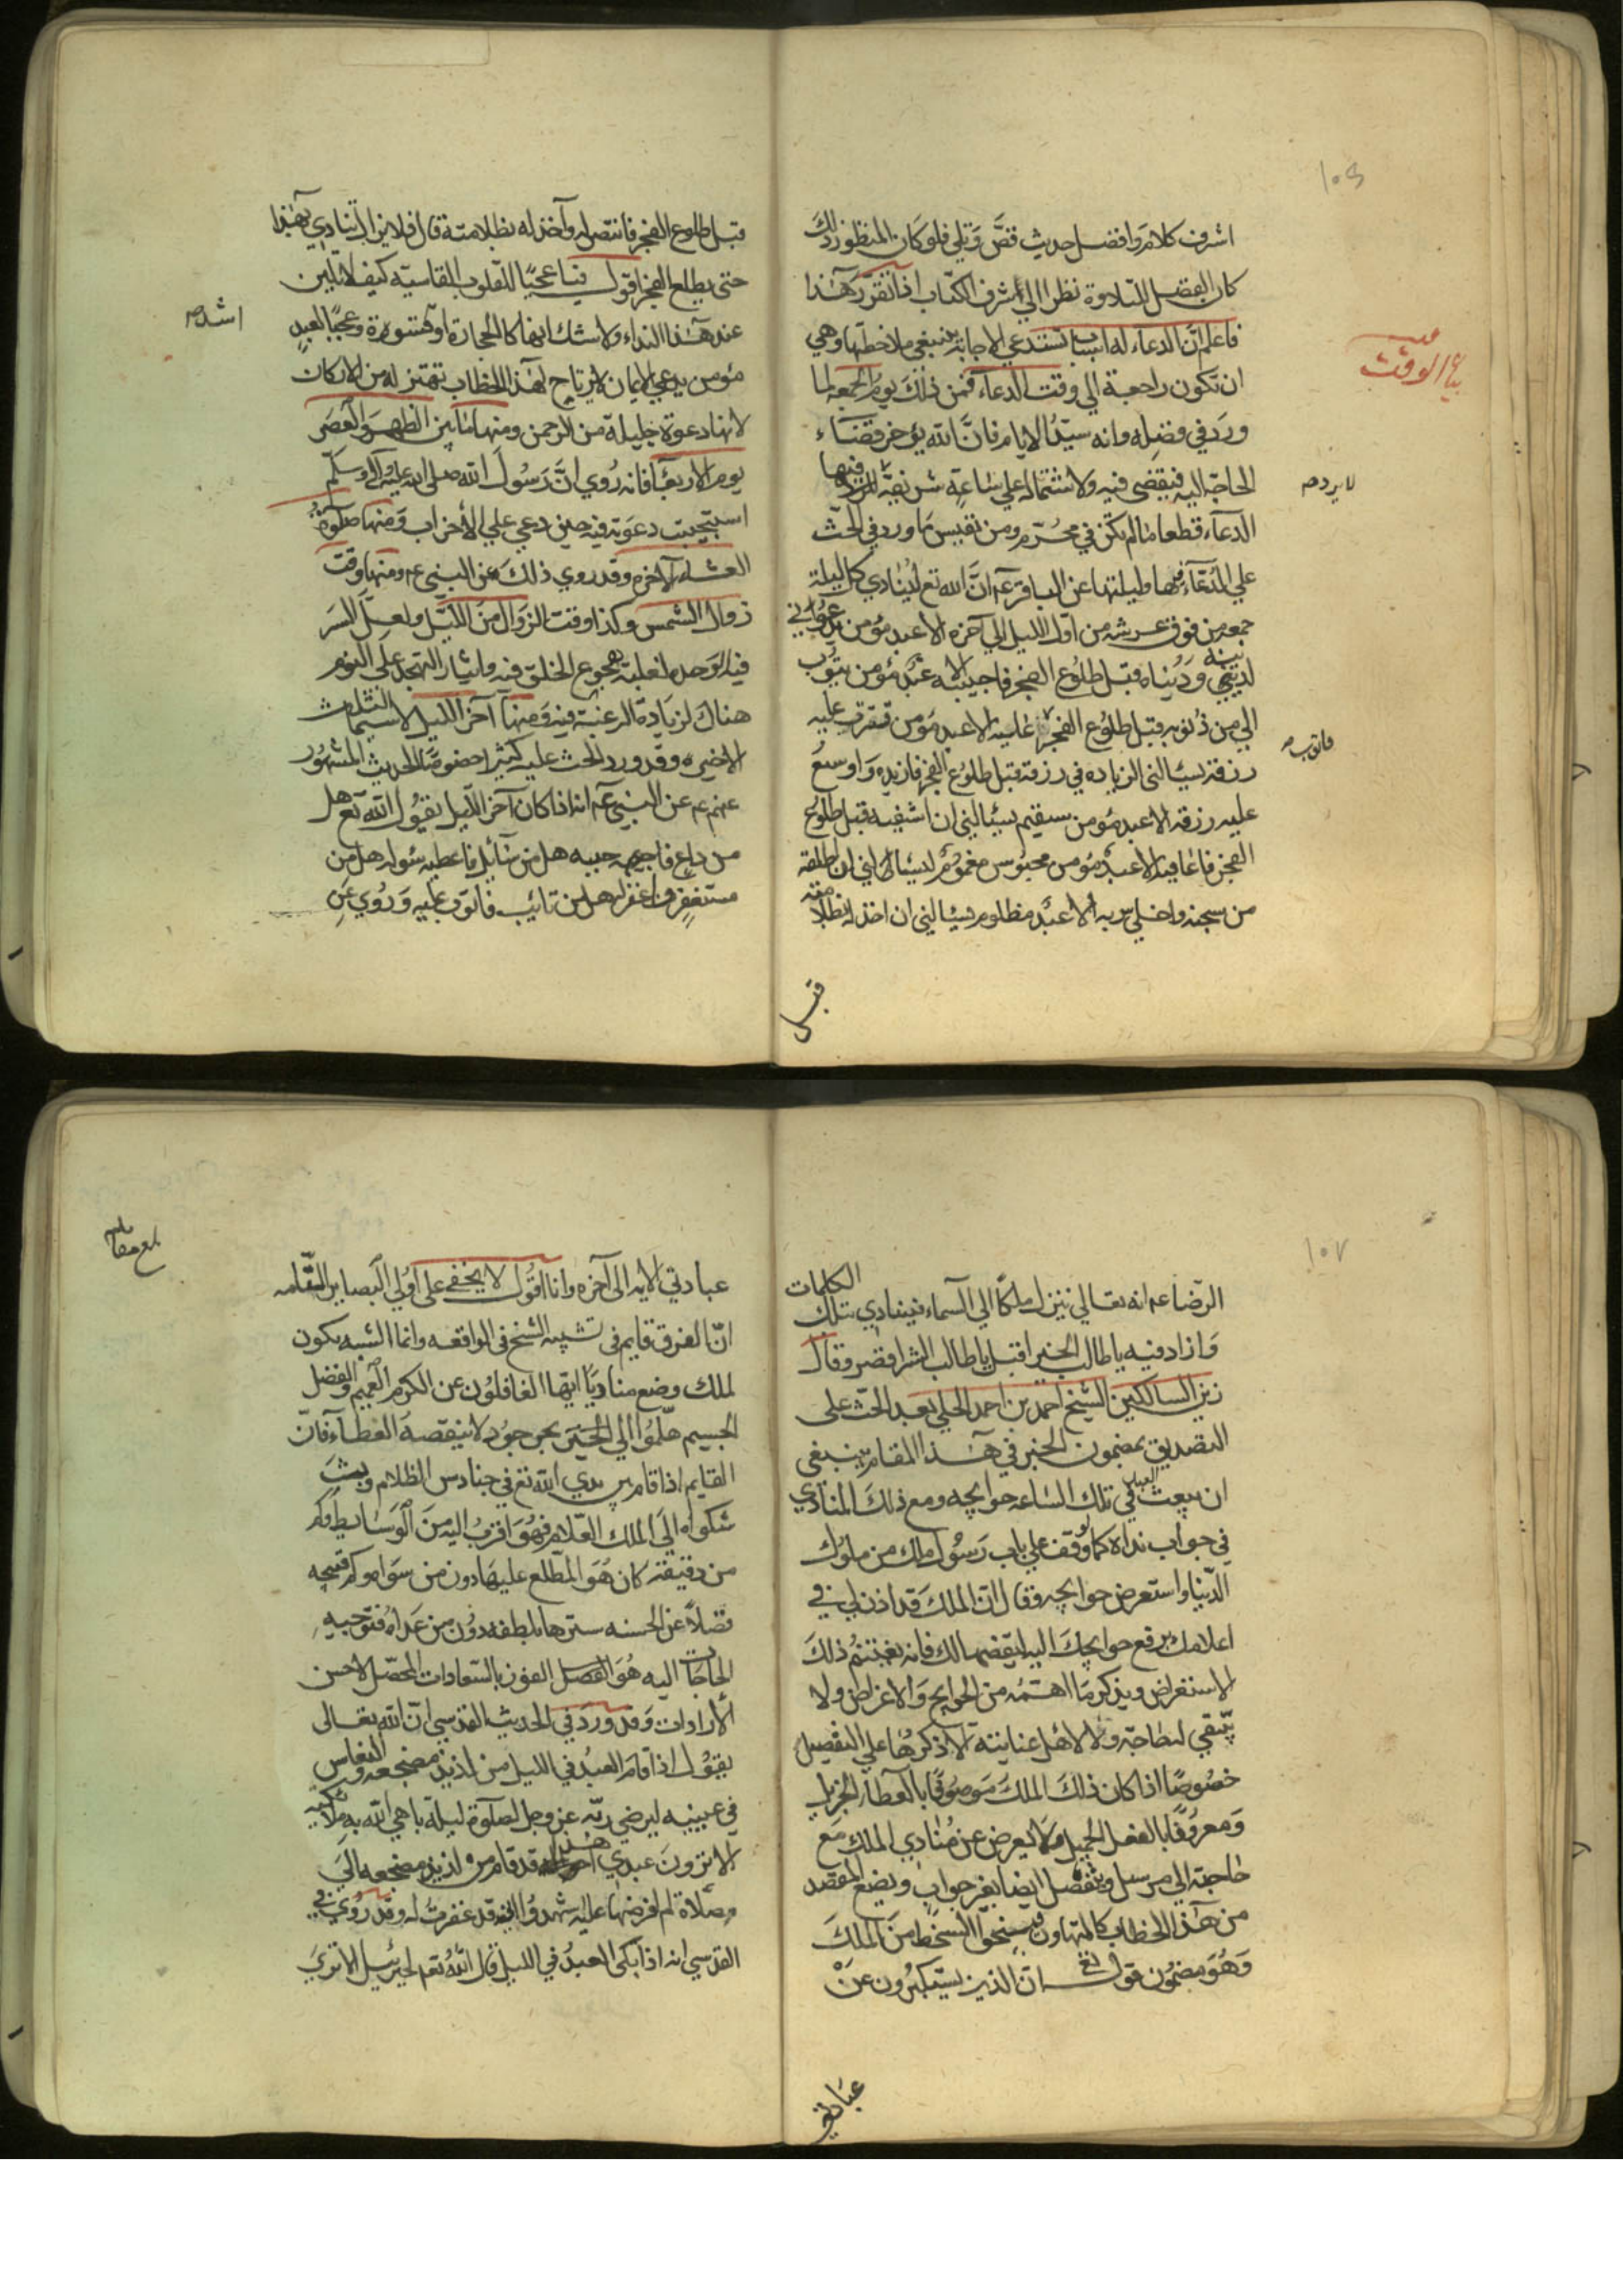 ١٠٦
اشرف كلام وافضل حديث قصّ وتلي فلو كان المنظور ذلك
كان الفضل للتلاوة نظرا الي اشرف الكتاب اذا تقرّر هذا
فاعلم انّ الدعاء له اسباب تستدعي الاجابة ينبغي ملاحظتها وهي
بيان الوقت
ان تكون راجعة الي وقت الدعاء فمن ذلك يوم الجمعه لما
ورد في فضله وانه سيّد الايام فانّ الله يؤخر قضاء
الحاجة اليه فيقضي فيه ولاشتماله علي ساعة من فيها
لا يرد
الدعاء قطعا ما لم تكن في محرّم ومن نفيس ما ورد في الحث
علي الدعاء فيها وليلتها عن الباقر عم انّ الله تع لينادي كل ليلة
جمعة من فوق عرشه من اول الليل الي آخره الا عبد مؤمن يدعواني
لدينه ودنياه قبل طلوع الفجر فاجيبه الا عبد مؤمن يتوب
الي من ذنوبه قبل طلوع الفجر عليه الا عبد مؤمن قترت عليه
فاتوب
رزقه يسئالني الزياده في رزقه قبل طلوع الفجر فازيده واوسع
عليه رزقه الا عبد مؤمن سقيم يسئالني ان اشفيه قبل طلوع
الفجر فاعافيه الا عبد مؤمن محبوس مغموم يسئالني ان اطلقه
من سجنه واخلي سربه الا عبد مظلوم يسئالني ان اخذ له بظلامته
قبل
قبل طلوع الفجر فانتصر له وآخذ له بظلامته قال فلا يزال ينادي بهذا
حتى يطلع الفجر اقول فيا عجبًا للقلوب القاسيه كيف لا تلين
عند هذا النداء ولا شك انها كالحجارة او قسوة وعجبًا لعبد
اشد
مؤمن يدعي الايمان لا يرتاح لهذا الخطاب تهتز له من الاركان
لانها دعوة جليلة من الرحمن ومنها ما بين الظهر والعصر
يوم الاربعا فانه رُوي انّ رسول الله صلى الله عليه وآله وسلم
استجيبت دعوته فيه حين دعي علي الأحزاب ومنها صلوة
العشاء الآخره وقد روي ذلك عن النبي عم ومنها وقت
زوال الشمس وكذا وقت الزوال من الليل ولعل السر
فيه لوحده لغلبة هجوع الخلق فيه وايثار التهجد علي النوم
هناك لزيادة الرغبة فيه ومنها آخر الليل لا سيما الثلث
الاخير وقد ورد الحث عليه كثيرا خصوصًا الحديث المشهور
عنهم عم عن النبي عم انه اذا كان آخر الليل يقول الله تع هل
من داع فاجيبه هل من سائل فاعطيه سوله هل من
مستغفر فاغفر له هل من تائب فاتوب عليه وروي عن
١٠٧
الرضا عم انه تعالي ينزل ملكًا الي السماء فينادي بتلك الكلمات
وازاد فيه يا طالب الخير اقبل يا طالب الشر اقصر وقال
زين السالكين الشيخ احمد بن احمد الحلي بعد الحث على
التصديق بمضمون الخبر في هذا المقام ينبغي
ان يبعث العبد في تلك الساعه حوايجه ومع ذلك المنادي
في جواب نداه كما لو وقف علي باب رسول ملك من ملوك
الدّنيا واستعرض حوايجه وقال انّ الملك قد اذن لي في
اعلامك برفع حوايجك اليه ليقضيها لك فانه يغتنم ذلك
الاستعراض ويذكر ما اهتمه من الحوايج والاغراض ولا
يبقي لنا حاجة ولا لاهل عنايته الا ذكرها علي التفصيل
خصوصًا اذا كان ذلك الملك موصوفًا بالعطا الجزيل
ومعروفًا بالفعل الجميل ولا يعرض عن مُنادي الملك مع
حاجته الي مرسله وينفصل ايضا بغير جواب ويضيع المقصد
من هذا الخطاب كالمتهاون فيستحق السخط من الملك
وهو مضمون قول تع انّ الذين يستكبرون عن
عبادتي
بلغ مقابلة
عبادتي الايه الى آخره وانا اقول لا يخفى على اولي البصاير السّالمه
انّ الفرق قايم في تشبيه الشيخ في الواقعه وانما الشبه يكون
لملك وضع مناديًا ايّها الغافلون عن الكرم العميم والفضل
الجسيم هلمّوا الي الحسن بحر جود لا ينقصه العطاء فانّ
القايم اذا قام بين يدي الله تع في حنادس الظلام وبث
شكواه الى الملك العلام فهو اقرب اليه من الوسايط وكم
من دقيقة كان هو المطلع عليها دون من سواه وكم قبيحه
فضلاً عن الحسنه سترها بلطفه دون من عداه فتوجيه
الحاجات اليه هو الفضل الفوز بالسعادات المحصّل لاحسن
الأرادات وقد ورد في الحديث القدسي انّ الله تعالى
يقول اذا قام العبد في الليل من لذيذ مضجعه والنعاس
في عينيه ليرضي ربّه عز وجل لصلوة ليلة باهي الله به ملائكته
الا ترون عبدي هذا قد قام من لذيذ مضجعه الي
صلاة لم افرضها عليه اشهدوا اني قد غفرت له وقد رُوي في
القدسي انه اذا بكى العبد في الليل قال الله تع لجبرئيل الا تري